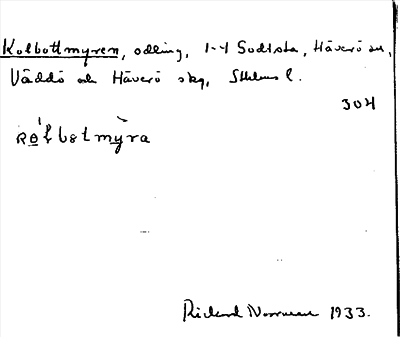 Kolbottmyren, odling, 1-4 Sodlsta, Häverö sn,
Väddö och Häverö skg, Sthlms l.
304
Richard Norrman 1933.